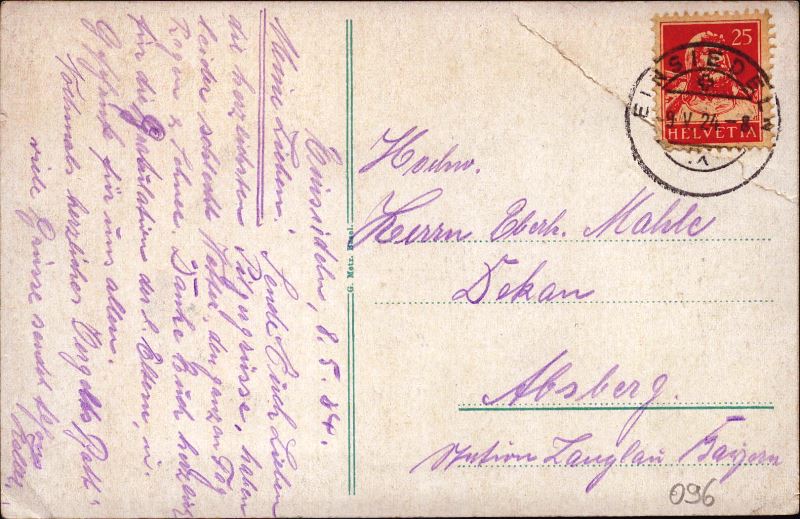 Einsiedeln, 8.5.24.
Meine Lieben! Sende Euch Lieben
die herzlichsten Pilgergrüsse, haben
leider schlecht Wetter, den ganzen Tag
Regen & Schnee. Danke Euch herzlich
für die Gratulation der l. Eltern, u.
für uns allen.
Nochmals herzliches Vergelts Gott
viele Grüsse sendet
25
HELVETIA
EINSIEDELN
9.V.24.-8
1
Hochw.
Herrn Eberh. Mahle
Dekan
Absberg.
Station Langlau Bayern
G. Metz, Basel.
096